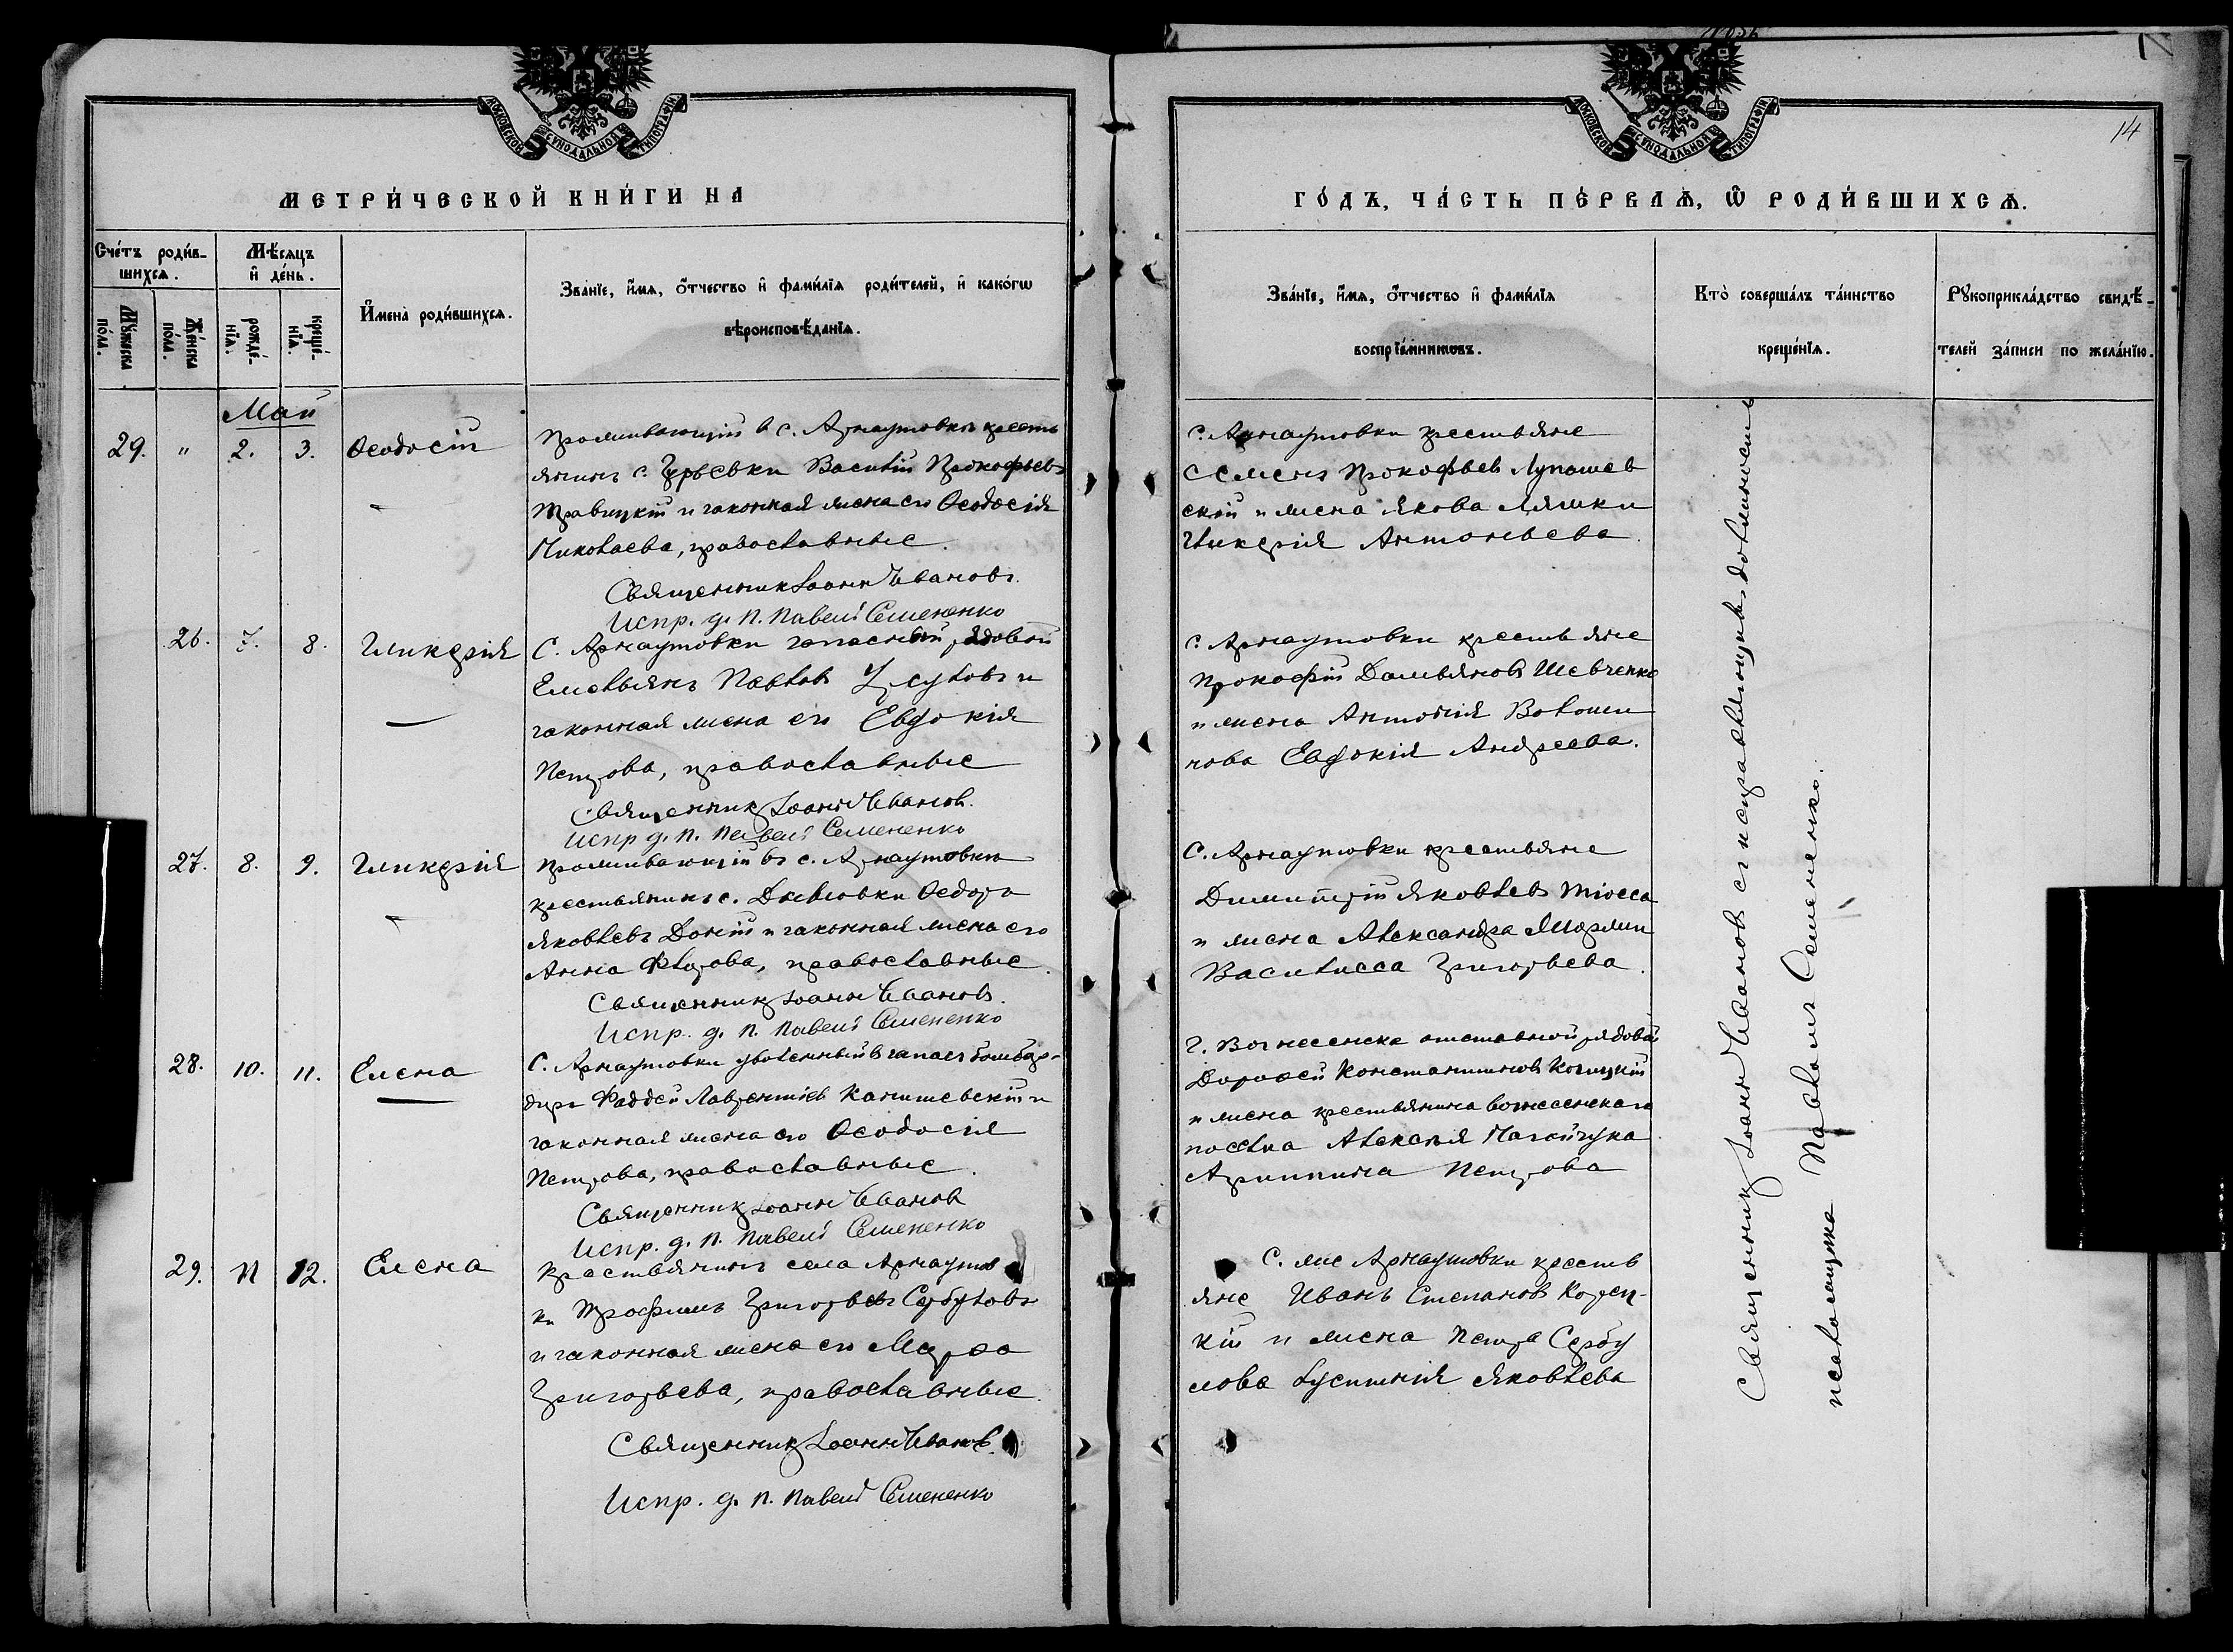 14
МОСКОВСКОЙ СѴНОДАЛЬНОЙ ТИПОГРАФІИ
МОСКОВСКОЙ СѴНОДАЛЬНОЙ ТИПОГРАФІИ
МЕТРИ́ЧЕСКОЙ КНИ́ГИ НА
ГО́ДЪ, ЧА́СТЬ ПЕ́РВАѦ, Ѡ҆ РОДИ́ВШИХСѦ.
Сче́тъ роди́в-
шихсѧ.
Мꙋ́жеска
по́ла.
Же́нска
по́ла.
Мѣ́сѧцъ
и҆ де́нь.
рожде́-
нїѧ.
креще́-
нїѧ.
И҆мена̀ роди́вшихсѧ.
Зва́нїе, и҆́мѧ, ѻ҆́тчество и҆ фами́лїѧ роди́телей, и҆ како́гѡ
вѣроисповѣ́данїѧ.
Зва́нїе, и҆́мѧ, ѻ҆́тчество и҆ фами́лїѧ
воспрїе́мниковъ.
Кто̀ соверша́лъ та́инство
креще́нїѧ.
Рꙋкоприкла́дство свидѣ́-
телей за́писи по жела́нїю.
Май
29. " 2. 3. Ѳеодосій
Проживающій в с. Арнаутовкѣ кресть
янинъ с. Гурьевки Василій Прокофьевъ
Травицкій и законная жена его Ѳеодосія
Николаева, православные.
Священникъ Іоаннъ Ивановъ.
Испр. д. п. Павелъ Семененко
с. Арнаутовки крестьяне
Семенъ Прокофьевъ Лупашев
скій и жена Якова Ляшки
Гликерія Антоньева.
26. 7. 8. Гликерія
С. Арнаутовки запасный рядовой
Емельянъ Павловъ и
законная жена его Евдокія
Петрова, православные
Священникъ Іоаннъ Ивановъ.
Испр д. п. Павелъ Семененко
с. Арнаутовки крестьяне
Прокофій Дамьяновъ Шевченко
и жена Антонія Волоши
нова Евдокія Андреева.
27. 8. 9. Гликерія
Проживающій въ с. Арнаутовкѣ
крестьянинъ с. Ѳедоръ
Яковлевъ Доній и законная жена его
Анна Флорова, православные.
Священникъ Іоаннъ Ивановъ.
Испр. д. п. Павелъ Семененко
С. Арнаутовки крестьяне
Димитрій Яковлевъ
и жена Александра
Василисса Григорьева.
28. 10. 11. Елена
С. Арнаутовки уволенный въ запасъ бомбар-
диръ Фаддей Лаврентіевъ Канишевскій и
законная жена его Ѳеодосія
Петрова, православные.
Священникъ Іоаннъ Ивановъ
Испр. д. п. Павелъ Семененко
г. Вознесенска отставной рядовой
Дорофей Константиновъ Козицкій
и жена крестьянина вознесенскаго
посёлка Алексѣя
Агриппина Петрова
29. 11 12. Елена
Крестьянинъ села Арнаутов
ки Трофимъ Григорьевъ Сербуловъ
и законная жена его Марѳа
Григорьева, православные.
Священникъ Іоаннъ Ивановъ.
Испр. д. п. Павелъ Семененко
С. же Арнаутовки кресть
яне Иванъ Степановъ Корец-
кій и жена Петра Сербу
лова Іустинія Яковлева
Священникъ Іоаннъ Ивановъ съ исправляющимъ должность
псаломщика Павломъ Семененко.